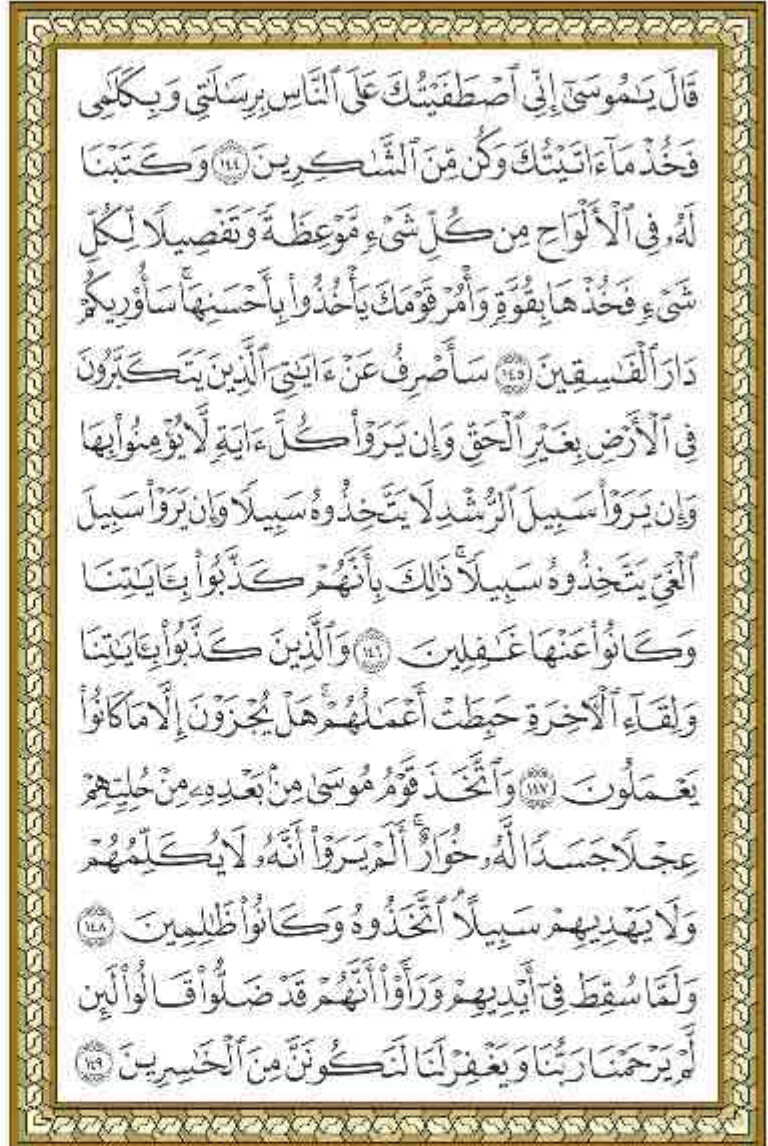 قَالَ يَـٰمُوسَىٰٓ إِنِّى ٱصْطَفَيْتُكَ عَلَى ٱلنَّاسِ بِرِسَـٰلَـٰتِى وَبِكَلَـٰمِى
فَخُذْ مَآ ءَاتَيْتُكَ وَكُن مِّنَ ٱلشَّـٰكِرِينَ ١٤٤ وَكَتَبْنَا
لَهُۥ فِى ٱلْأَلْوَاحِ مِن كُلِّ شَىْءٍ مَّوْعِظَةً وَتَفْصِيلًا لِّكُلِّ
شَىْءٍ فَخُذْهَا بِقُوَّةٍ وَأْمُرْ قَوْمَكَ يَأْخُذُوا۟ بِأَحْسَنِهَا ۚ سَأُو۟رِيكُمْ
دَارَ ٱلْفَـٰسِقِينَ ١٤٥ سَأَصْرِفُ عَنْ ءَايَـٰتِىَ ٱلَّذِينَ يَتَكَبَّرُونَ
فِى ٱلْأَرْضِ بِغَيْرِ ٱلْحَقِّ وَإِن يَرَوْا۟ كُلَّ ءَايَةٍ لَّا يُؤْمِنُوا۟ بِهَا
وَإِن يَرَوْا۟ سَبِيلَ ٱلرُّشْدِ لَا يَتَّخِذُوهُ سَبِيلًا وَإِن يَرَوْا۟ سَبِيلَ
ٱلْغَىِّ يَتَّخِذُوهُ سَبِيلًا ۚ ذَٰلِكَ بِأَنَّهُمْ كَذَّبُوا۟ بِـَٔايَـٰتِنَا
وَكَانُوا۟ عَنْهَا غَـٰفِلِينَ ١٤٦ وَٱلَّذِينَ كَذَّبُوا۟ بِـَٔايَـٰتِنَا
وَلِقَآءِ ٱلْـَٔاخِرَةِ حَبِطَتْ أَعْمَـٰلُهُمْ ۚ هَلْ يُجْزَوْنَ إِلَّا مَا كَانُوا۟
يَعْمَلُونَ ١٤٧ وَٱتَّخَذَ قَوْمُ مُوسَىٰ مِنۢ بَعْدِهِۦ مِنْ حُلِيِّهِمْ
عِجْلًا جَسَدًا لَّهُۥ خُوَارٌ ۚ أَلَمْ يَرَوْا۟ أَنَّهُۥ لَا يُكَلِّمُهُمْ
وَلَا يَهْدِيهِمْ سَبِيلًا ۘ ٱتَّخَذُوهُ وَكَانُوا۟ ظَـٰلِمِينَ ١٤٨
وَلَمَّا سُقِطَ فِىٓ أَيْدِيهِمْ وَرَأَوْا۟ أَنَّهُمْ قَدْ ضَلُّوا۟ قَالُوا۟ لَئِن
لَّمْ يَرْحَمْنَا رَبُّنَا وَيَغْفِرْ لَنَا لَنَكُونَنَّ مِنَ ٱلْخَـٰسِرِينَ ١٤٩